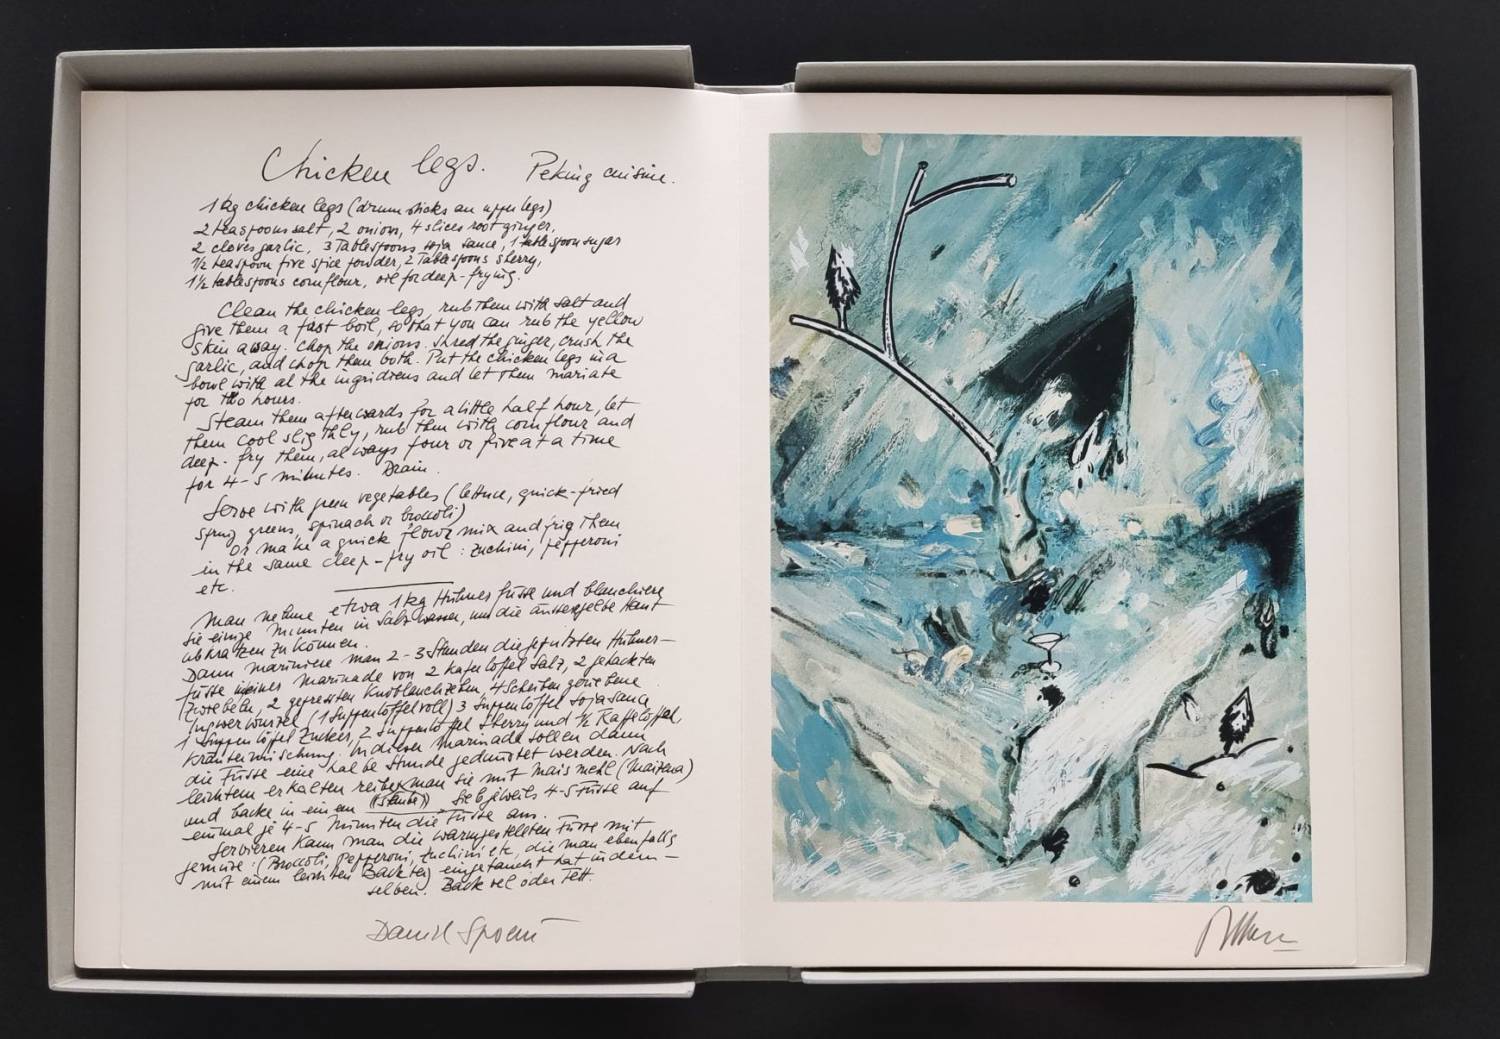 Chicken legs. Peking cuisine.
1 kg chicken legs (drum sticks an upper legs)
2 teaspoons salt, 2 onions, 4 slices root ginger,
2 cloves garlic, 3 Tablespoons soja sauce, 1 tablespoon sugar
1/2 teaspoon five spice powder, 2 Tablespoons sherry,
1 1/2 tablespoons cornflour, oil for deep-frying.
Clean the chicken legs, rub them with salt and
give them a fast boil, so that you can rub the yellow
skin away. Chop the onions. Shred the ginger, crush the
garlic, and chop them both. Put the chicken legs in a
bowl with al the ingridiens and let them mariate
for two hours.
Steam them afterwards for a little half hour, let
them cool slightly, rub them with cornflour and
deep-fry them, always four or five at a time
for 4-5 minutes. Drain.
Serve with green vegetables (lettuce, quick-fried
spring greens, spinach or broccoli)
Or make a quick flour mix and frig them
in the same deep-fry oil: zuchini, pepperoni
etc.
Man nehme etwa 1 kg Hühner füsse und blanchiere
sie einige Minuten in Salzwasser, um die äussere gelbe Haut
abkratzen zu können.
Dann mariniere man 2-3 Stunden die geputzten Hühner-
füsse in einer Marinade von 2 Kaffelöffel Salz, 2 gehackten
Zwiebeln, 2 gepressten Knoblauchzehen, 4 Scheiben geriebene
Ingwerwurzel (1 Suppenlöffel voll) 3 Suppenlöffel Sojasauce
1 Suppenlöffel Zucker, 2 Suppenlöffel Sherry und 1/2 Kaffelöffel
Kräutermischung. In dieser Marinade sollen dann
die Füsse eine halbe Stunde gedünstet werden. Nach
leichtem erkalten reibe man sie mit Maismehl (Maizena)
und backe in einem (Staube) jeweils 4-5 Füsse auf
einmal je 4-5 Minuten die Füsse aus.
Servieren kann man die warmgestellten Füsse mit
gemüse: (Broccoli, Pepperoni, Zuchini etc, die man ebenfalls
mit einem leichten Backteig eingetaucht hat in dem-
selben. Back oel oder Fett.
Daniel Spoerri